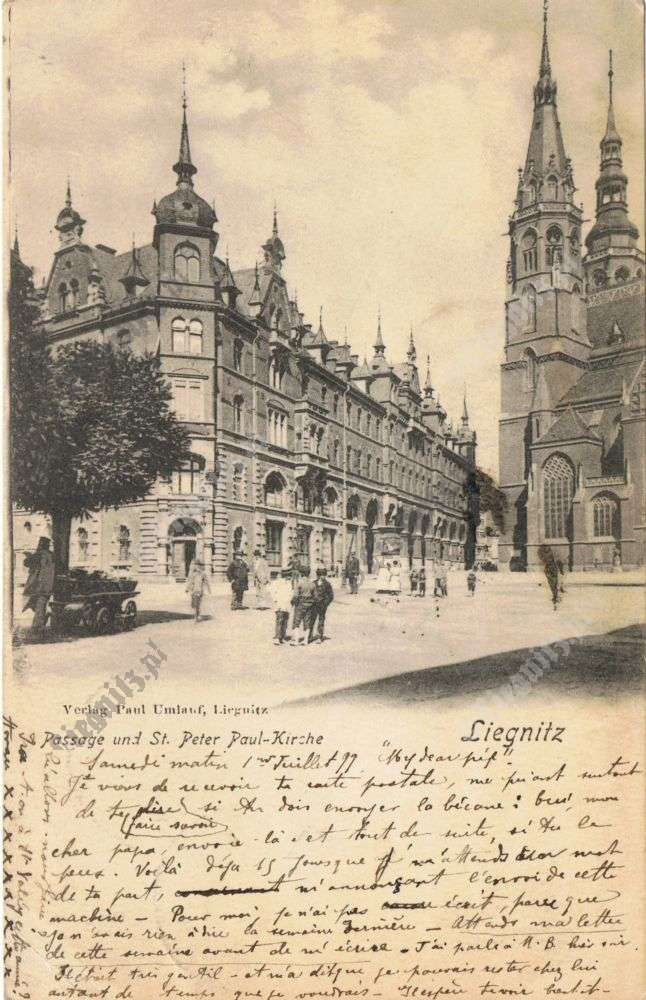 Verlag Paul Umlauf, Liegnitz
Passage und St. Peter Paul-Kirche
Liegnitz
Samedi matin 1er Juillet 99 "My dear pép"
Je viens de recevoir ta carte postale, me priant surtout
de te faire savoir si tu dois envoyer la bécane: oui, mon
cher papa, envoie-là et tout de suite, si tu la
peux. Voilà déjà 15 jours que j' m'attends à un mot
de ta part, m'annonçant l'envoi de cette
machine — Pour moi, je n'ai pas écrit, parce que
je n'avais rien à dire la semaine dernière — Attends ma lettre
de cette semaine avant de m'écrire — J'ai parlé à M. B hier soir.
Il était très gentil — et m'a dit que je pouvais rester chez lui
autant de temps que je voudrais — J'espère te voir bientôt
liegnitz.pl